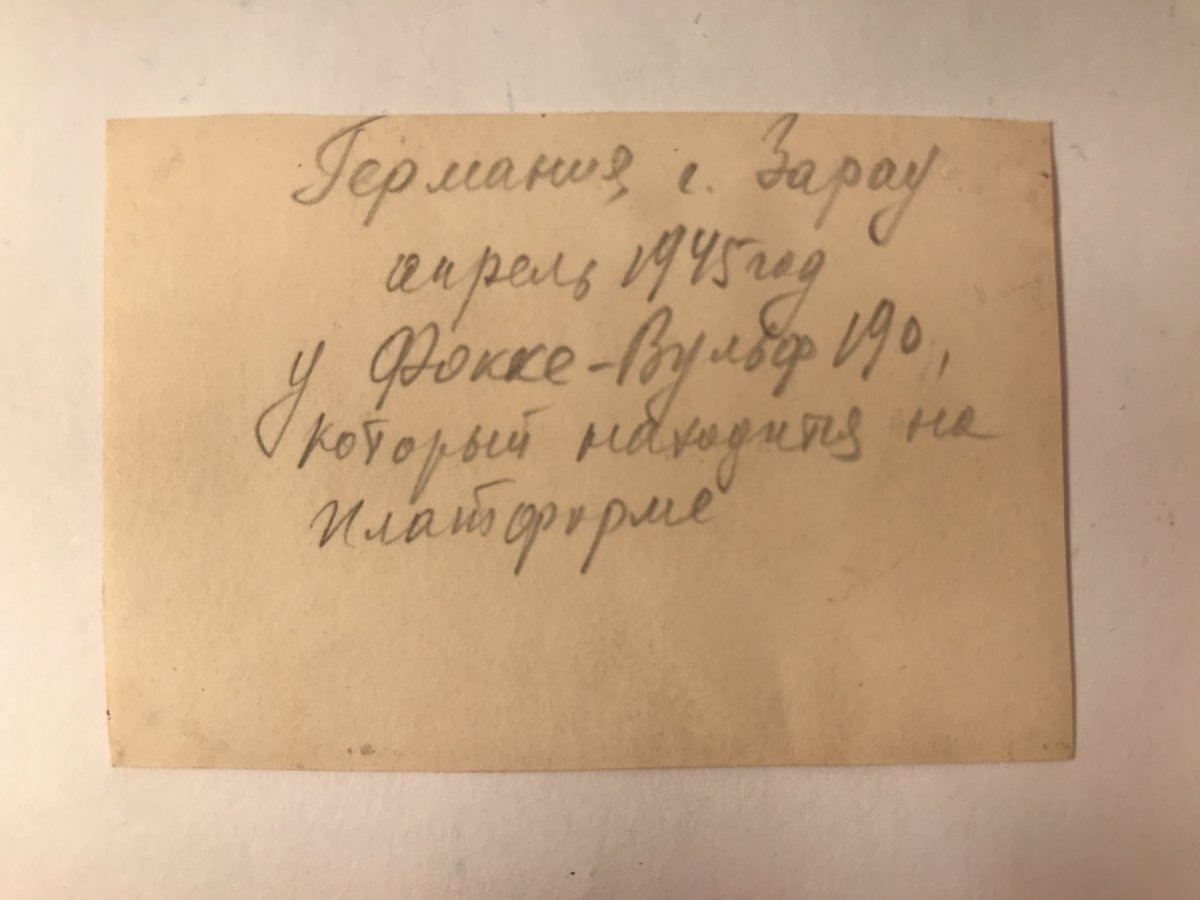 Германия, г. Зарау
апрель 1945 год
у Фокке-Вульф 190,
который находится на
платформе